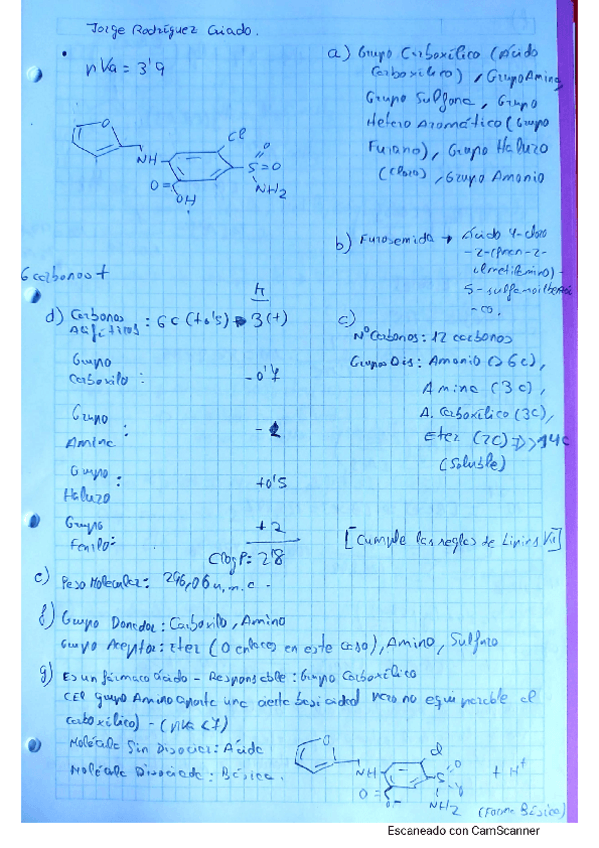 Jorge Rodríguez Criado.
pKa = 3'9
O
NH
Cl
S=O
O
NH2
O=
OH
a) Grupo Carboxílico (Ácido
Carboxílico), Grupo Amina,
Grupo Sulfona, Grupo
Hetero Aromático (Grupo
Furano), Grupo Haluro
(Cloro), Grupo Amonio
b) Furosemida → Ácido 4-cloro
-2-(furan-2-
ilmetilamino)-
5-sulfamoilbenzoi
-co.
6 carbonos +
π
d) Carbonos
Alifáticos : 6c (+0'5) → 3(+)
Grupo
Carboxilo : -0'7
Grupo
Amina : -1
Grupo
Haluro : +0'5
Grupo
Fenilo: +2
ClogP = 2'8
c)
Nº Carbonos: 12 carbonos
Grupos Dis: Amonio (>6c),
Amina (3c),
A. Carboxílico (3c),
Eter (2c) => >14c
(Soluble)
[Cumple las reglas de Lipinski]
e) Peso Molecular: 296,06 u.m.a.
f) Grupo Donador: Carboxilo, Amino
Grupo Aceptor: eter (0 enlaces en este caso), Amino, Sulfuro
g) Es un fármaco ácido - Responsable: Grupo Carboxílico
(El grupo Amino aporta una cierta basicidad pero no equiparable al
carboxílico) - (pKa <7)
Molécula Sin Disociar: Ácida
Molécula Disociada: Básica.
O
NH
Cl
S
O
O
O=
O-
NH2
+ H+
(Forma Básica)
Escaneado con CamScanner